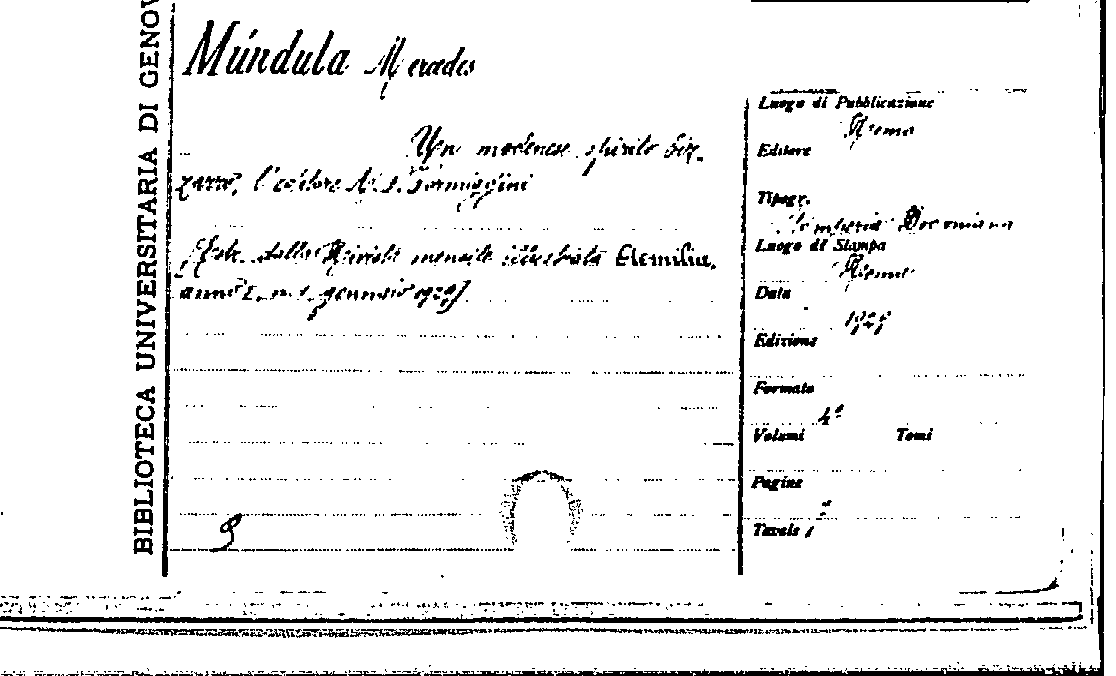 BIBLIOTECA UNIVERSITARIA DI GENOV
Múndula Mercedes
Un modenese spirito biz-
zarro, l'editore A. F. Formiggini
Estr. dalla Rivista mensile illustrata Aemilia,
anno I, n. 1, gennaio 1929)
Luogo di Pubblicazione
Roma
Editore
Tipogr.
Luogo di Stampa
Roma
Data
Edizione
Formato
4°
Volumi Tomi
Pagine
Tavole